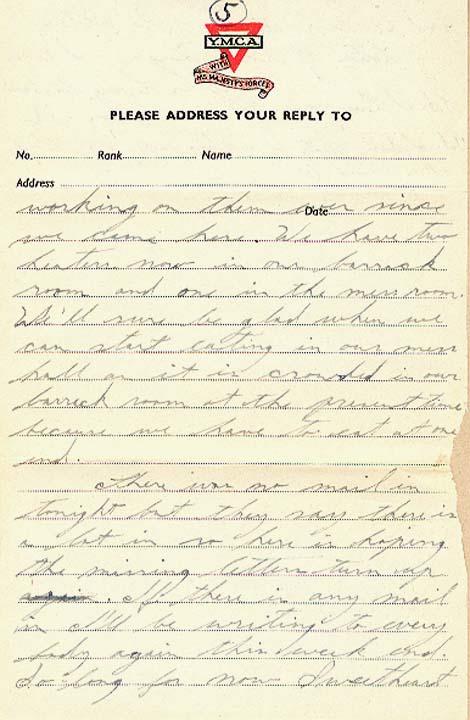 5
Y.M.C.A.
WITH
HIS MAJESTY'S FORCES
PLEASE ADDRESS YOUR REPLY TO
No. Rank Name
Address
Date
working on them ever since
we came here. We have two
heaters now in our barrack
room and one in the mess room.
We'll sure be glad when we
can start eating in our mess
hall as it is crowded in our
barrack room at the present time
because we have to eat at one
end.
There was no mail in
tonight but they say there is
a lot in so here is hoping
the missing letters turn up
again. If there is any mail
in I'll be writing to every
body again this week end.
So long for now Sweetheart